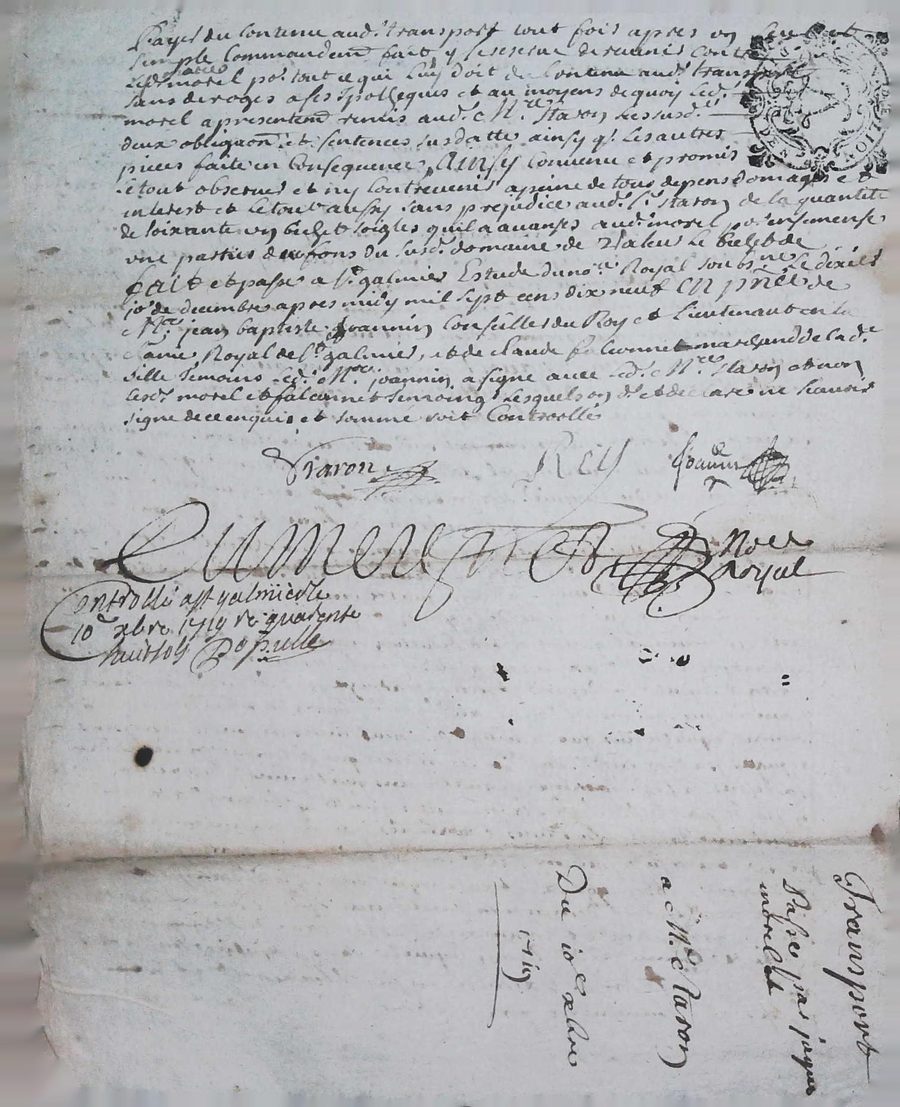 Payer du contenu aud. transport tout fois apres un
simple Commandemt fait y se reserve de revenir contre
Led. morel por tout ce qui Luy doit du Contenu aud. transport
sans deroger a ses ypotheques et au moyens de quoy Led.
morel a presentemt remis aud. Mre Staron Les susd.
deux obligaons et sentences susdattes ainsy q. Les autres
pieces faite en Consequences, Ainsy Convenu et promis
Le tout observer et ny Contrevenir a peine de tous depens domages et
interest et Le tout aussy sans prejudice aud. Sr Staron de la quantité
de soixante un bichet soigles quil a avansés aud. morel por ensemense
une parties des fons du susd. domaine de
fait et passé a St. galmier Estude du nore Royal soubsné Le dixies
jor de decembre apres midy mil sept cens dix neuf En pñce de
Mre jean baptiste Joannin Conseiller du Roy et Lieutenant en la
Royal de St galmier, et de claude falconnet marchand de lad.
ville temoins Led. Mre joannin a signé avec Led. Mre Staron et non
Lesd. morel et falconnet temoing Lesquels on dt et declare ne scavoir
signe de ce enquis et sommé soit Controllé
Staron Rey Joannin
Nore
Royal
Controllé a St galmier le
10e xbre 1719 R quarente
huit sols
Transport
Passer par jaques
morel
a Mre Staron
Du 10e xbre
1719